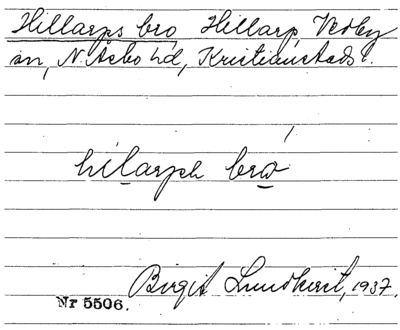 Hillarps bro, Hillarp, Vedby
sn, N. Åsbo hd, Kristianstads l.
hilarps bro
Birgit Lundkvist, 1937.
Nr 5506.